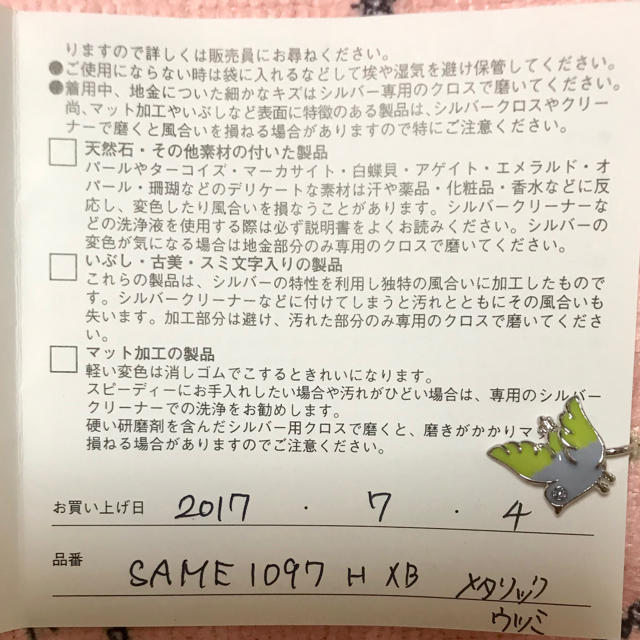 りますので詳しくは販売員にお尋ねください。
●ご使用にならない時は袋に入れるなどして埃や湿気を避け保管してください。
●着用中、地金についた細かなキズはシルバー専用のクロスで磨いてください。
尚、マット加工やいぶしなど表面に特徴のある製品は、シルバークロスやクリー
ナーで磨くと風合いを損ねる場合がありますので特にご注意ください。
□ 天然石・その他素材の付いた製品
パールやターコイズ・マーカサイト・白蝶貝・アゲイト・エメラルド・オ
パール・珊瑚などのデリケートな素材は汗や薬品・化粧品・香水などに反
応し、変色したり風合いを損なうことがあります。シルバークリーナーな
どの洗浄液を使用する際は必ず説明書をよくお読みください。シルバーの
変色が気になる場合は地金部分のみ専用のクロスで磨いてください。
□ いぶし・古美・スミ文字入りの製品
これらの製品は、シルバーの特性を利用し独特の風合いに加工したもので
す。シルバークリーナーなどに付けてしまうと汚れとともにその風合いも
失います。加工部分は避け、汚れた部分のみ専用のクロスで磨いてくださ
い。
□ マット加工の製品
軽い変色は消しゴムでこするときれいになります。
スピーディーにお手入れしたい場合や汚れがひどい場合は、専用のシルバー
クリーナーでの洗浄をお勧めします。
硬い研磨剤を含んだシルバー用クロスで磨くと、磨きがかかりマ
損ねる場合がありますのでご注意ください。
お買い上げ日 2017 . 7 . 4
品番 SAME1097 H XB メタリック